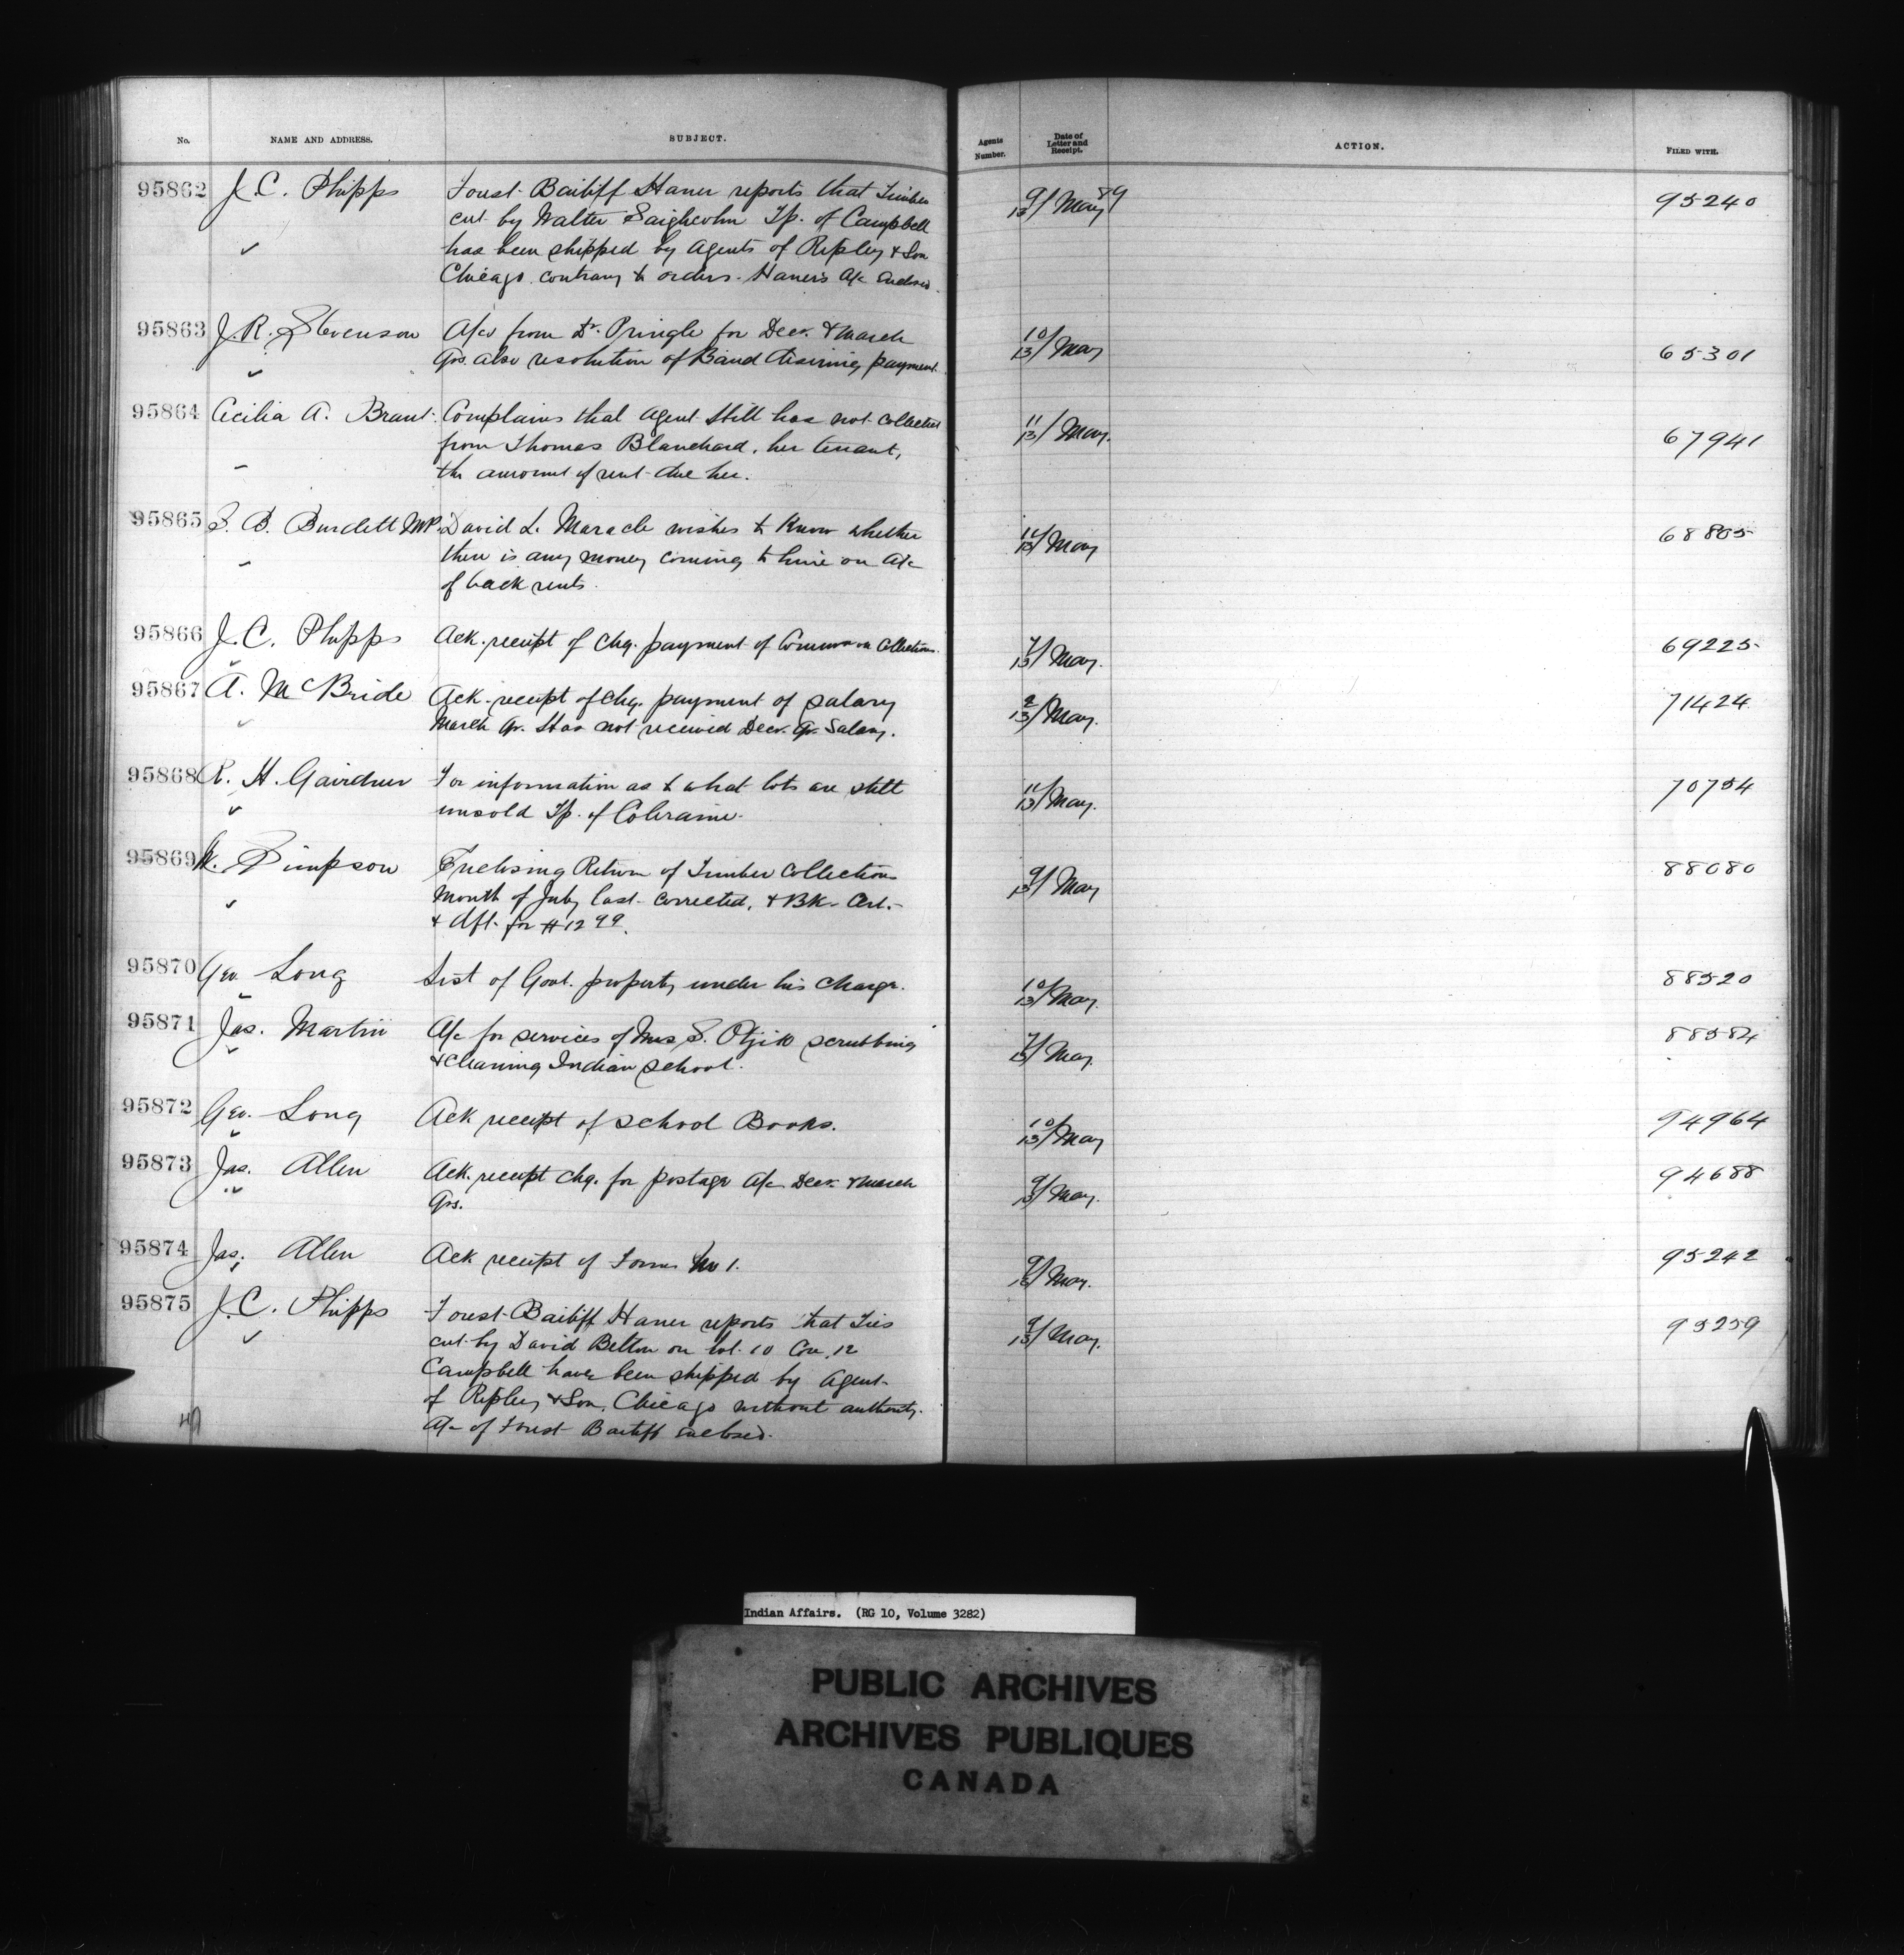 No. NAME AND ADDRESS. SUBJECT. Agents Number. Date of Letter and Receipt. ACTION. FILED WITH.
95862 J.C. Phipps Forest Bailiff Haner reports that Timber 9/13 May 89 95240
cut by Walter Tp. of Campbell
has been shipped by Agents of Ripley & Son
Chicago contrary to orders. Haner's A/c Enclosed.
95863 J.R. Stevenson A/cs from Dr. Pringle for Decr. & March 10/13 May 65301
Qrs. also resolution of Band desiring payment.
95864 Cecilia A. Brant Complains that Agent still has not collected 11/13 May. 67941
from Thomas Blanchard, her tenant,
the amount of rent due her.
95865 S. B. Burdett M.P. David L. Maracle wishes to know whether 13 May 68805
there is any money coming to him on A/c
of back rents.
95866 J.C. Phipps Ack. receipt of Chq. payment of Commn on Collections. 7/13 May. 69225
95867 A. McBride Ack. receipt of Chq. payment of salary 13 May. 71424
March Qr. Has not received Decr. Qr. Salary.
95868 R. H. Gairdner For information as to what lots are still 11/13 May. 70754
unsold Tp. of Colraine.
95869 W. Simpson Enclosing Return of Timber Collections 9/13 May 88080
Month of July last corrected, & Bk. Cert.
& Dft. for $12 99.
95870 Geo. Long List of Govt. property under his charge. 10/13 May. 88520
95871 Jas. Martin A/c for services of Mrs S. scrubbing 7/13 May. 88584
& cleaning Indian School.
95872 Geo. Long Ack receipt of School Books. 10/13 May 94964
95873 Jas. Allen Ack. receipt Chq. for postage A/c Decr. & March 9/13 May. 94688
Qrs.
95874 Jas. Allen Ack receipt of Forms No 1. 9/13 May. 95242
95875 J.C. Phipps Forest Bailiff Haner reports that Ties 9/13 May. 95259
cut by David Belton on lot 10 Con. 12
Campbell have been shipped by Agent
of Ripley & Son, Chicago without authority.
A/c of Forest Bailiff enclosed.
Indian Affairs. (RG 10, Volume 3282)
PUBLIC ARCHIVES
ARCHIVES PUBLIQUES
CANADA